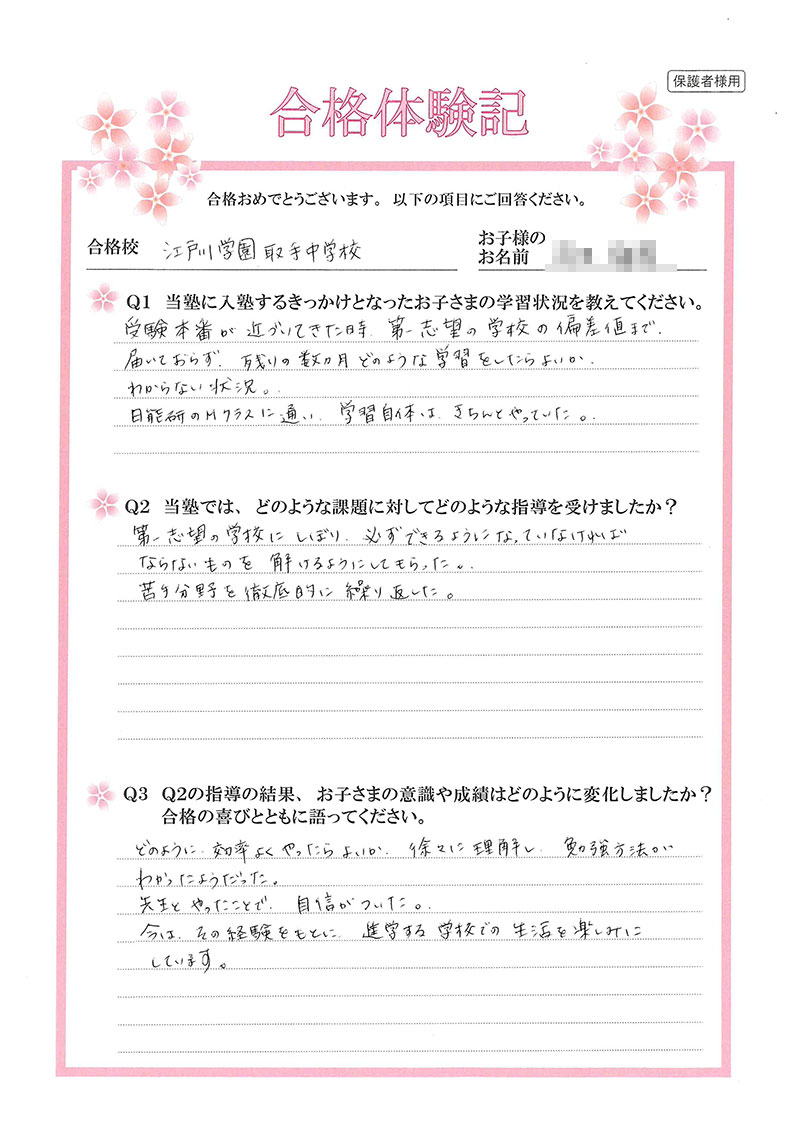 保護者様用
合格体験記
合格おめでとうございます。以下の項目にご回答ください。
合格校 江戸川学園取手中学校
お子様の
お名前
Q1 当塾に入塾するきっかけとなったお子さまの学習状況を教えてください。
受験本番が近づいてきた時、第一志望の学校の偏差値まで、
届いておらず、残りの数カ月どのような学習をしたらよいか、
わからない状況。
日能研のMクラスに通い、学習自体は、きちんとやっていた。
Q2 当塾では、どのような課題に対してどのような指導を受けましたか？
第一志望の学校にしぼり、必ずできるようになっていなければ
ならないものを解けるようにしてもらった。
苦手分野を徹底的に繰り返した。
Q3 Q2の指導の結果、お子さまの意識や成績はどのように変化しましたか？
合格の喜びとともに語ってください。
どのように、効率よくやったらよいか、徐々に理解し、勉強方法が
わかったようだった。
先生とやったことで、自信がついた。
今は、その経験をもとに、進学する学校での生活を楽しみに
しています。